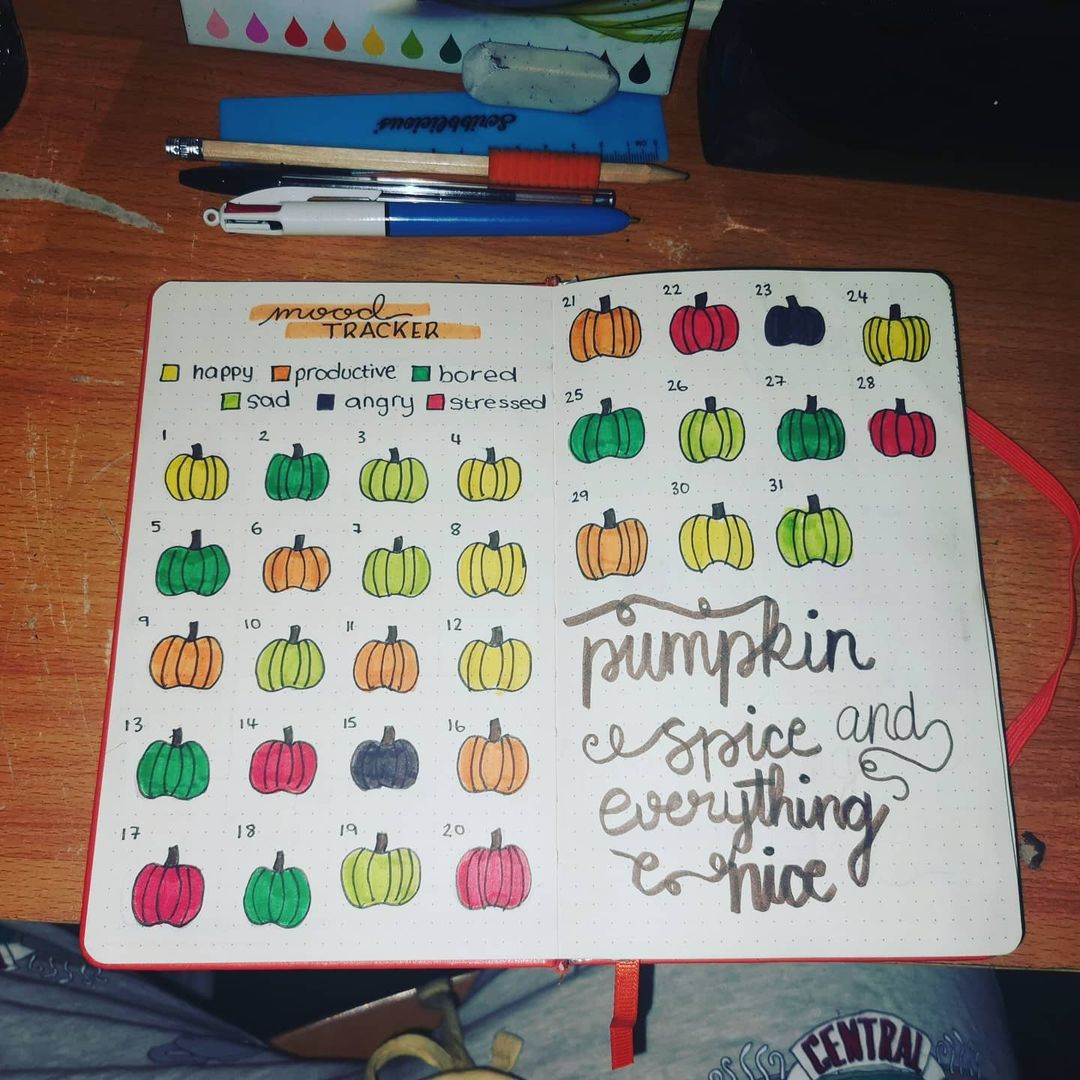 Scribblicious
mood
TRACKER
happy productive bored
sad angry stressed
1 2 3 4
5 6 7 8
9 10 11 12
13 14 15 16
17 18 19 20
21 22 23 24
25 26 27 28
29 30 31
pumpkin
spice and
everything
nice
CENTRAL